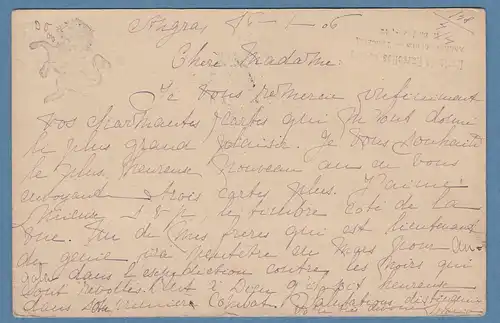 Angra 16-1-06
Chère Madame:
Je vous remercie infiniment
vos charmantes cartes qui m'ont donné
le plus grand plaisir. Je vous souhaite
le plus heureux nouveau an en vous
envoyant trois cartes plus. J'aime
mieux le timbre coté de la
vue. Un de mes frères qui est lieutenant
du génie ira peut-être en Mars pour An-
gola dans l'expédiction contre les noirs qui
sont révoltés. C'est à Dieu qu'il soit heureuse
dans son premier combat. Salutations